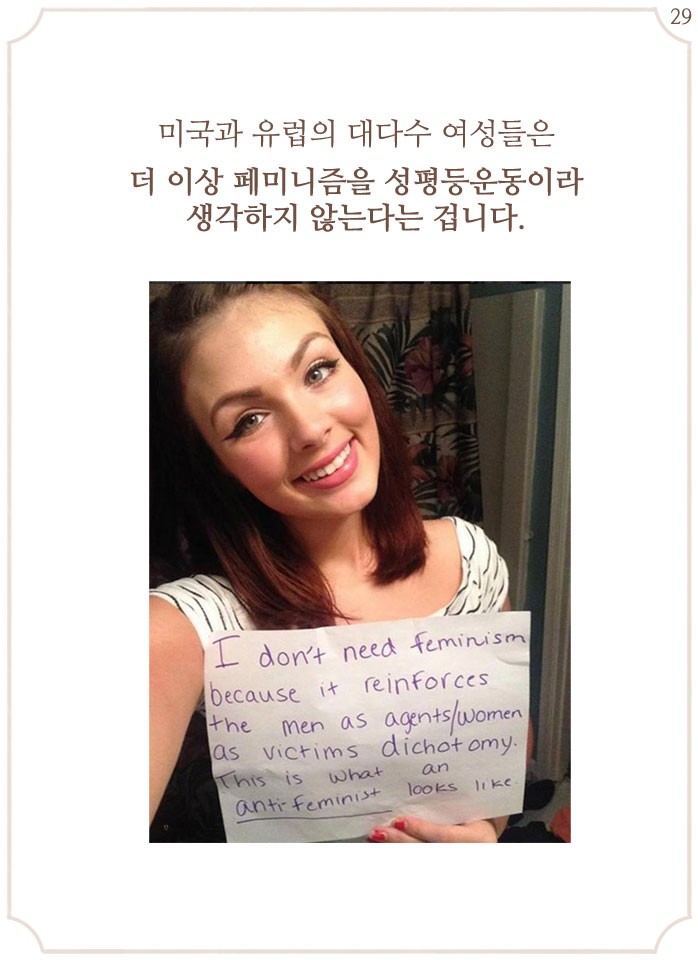 29
미국과 유럽의 대다수 여성들은
더 이상 페미니즘을 성평등운동이라
생각하지 않는다는 겁니다.
I don't need feminism
because it reinforces
the men as agents/women
as victims dichotomy.
This is what an
anti-feminist looks like.